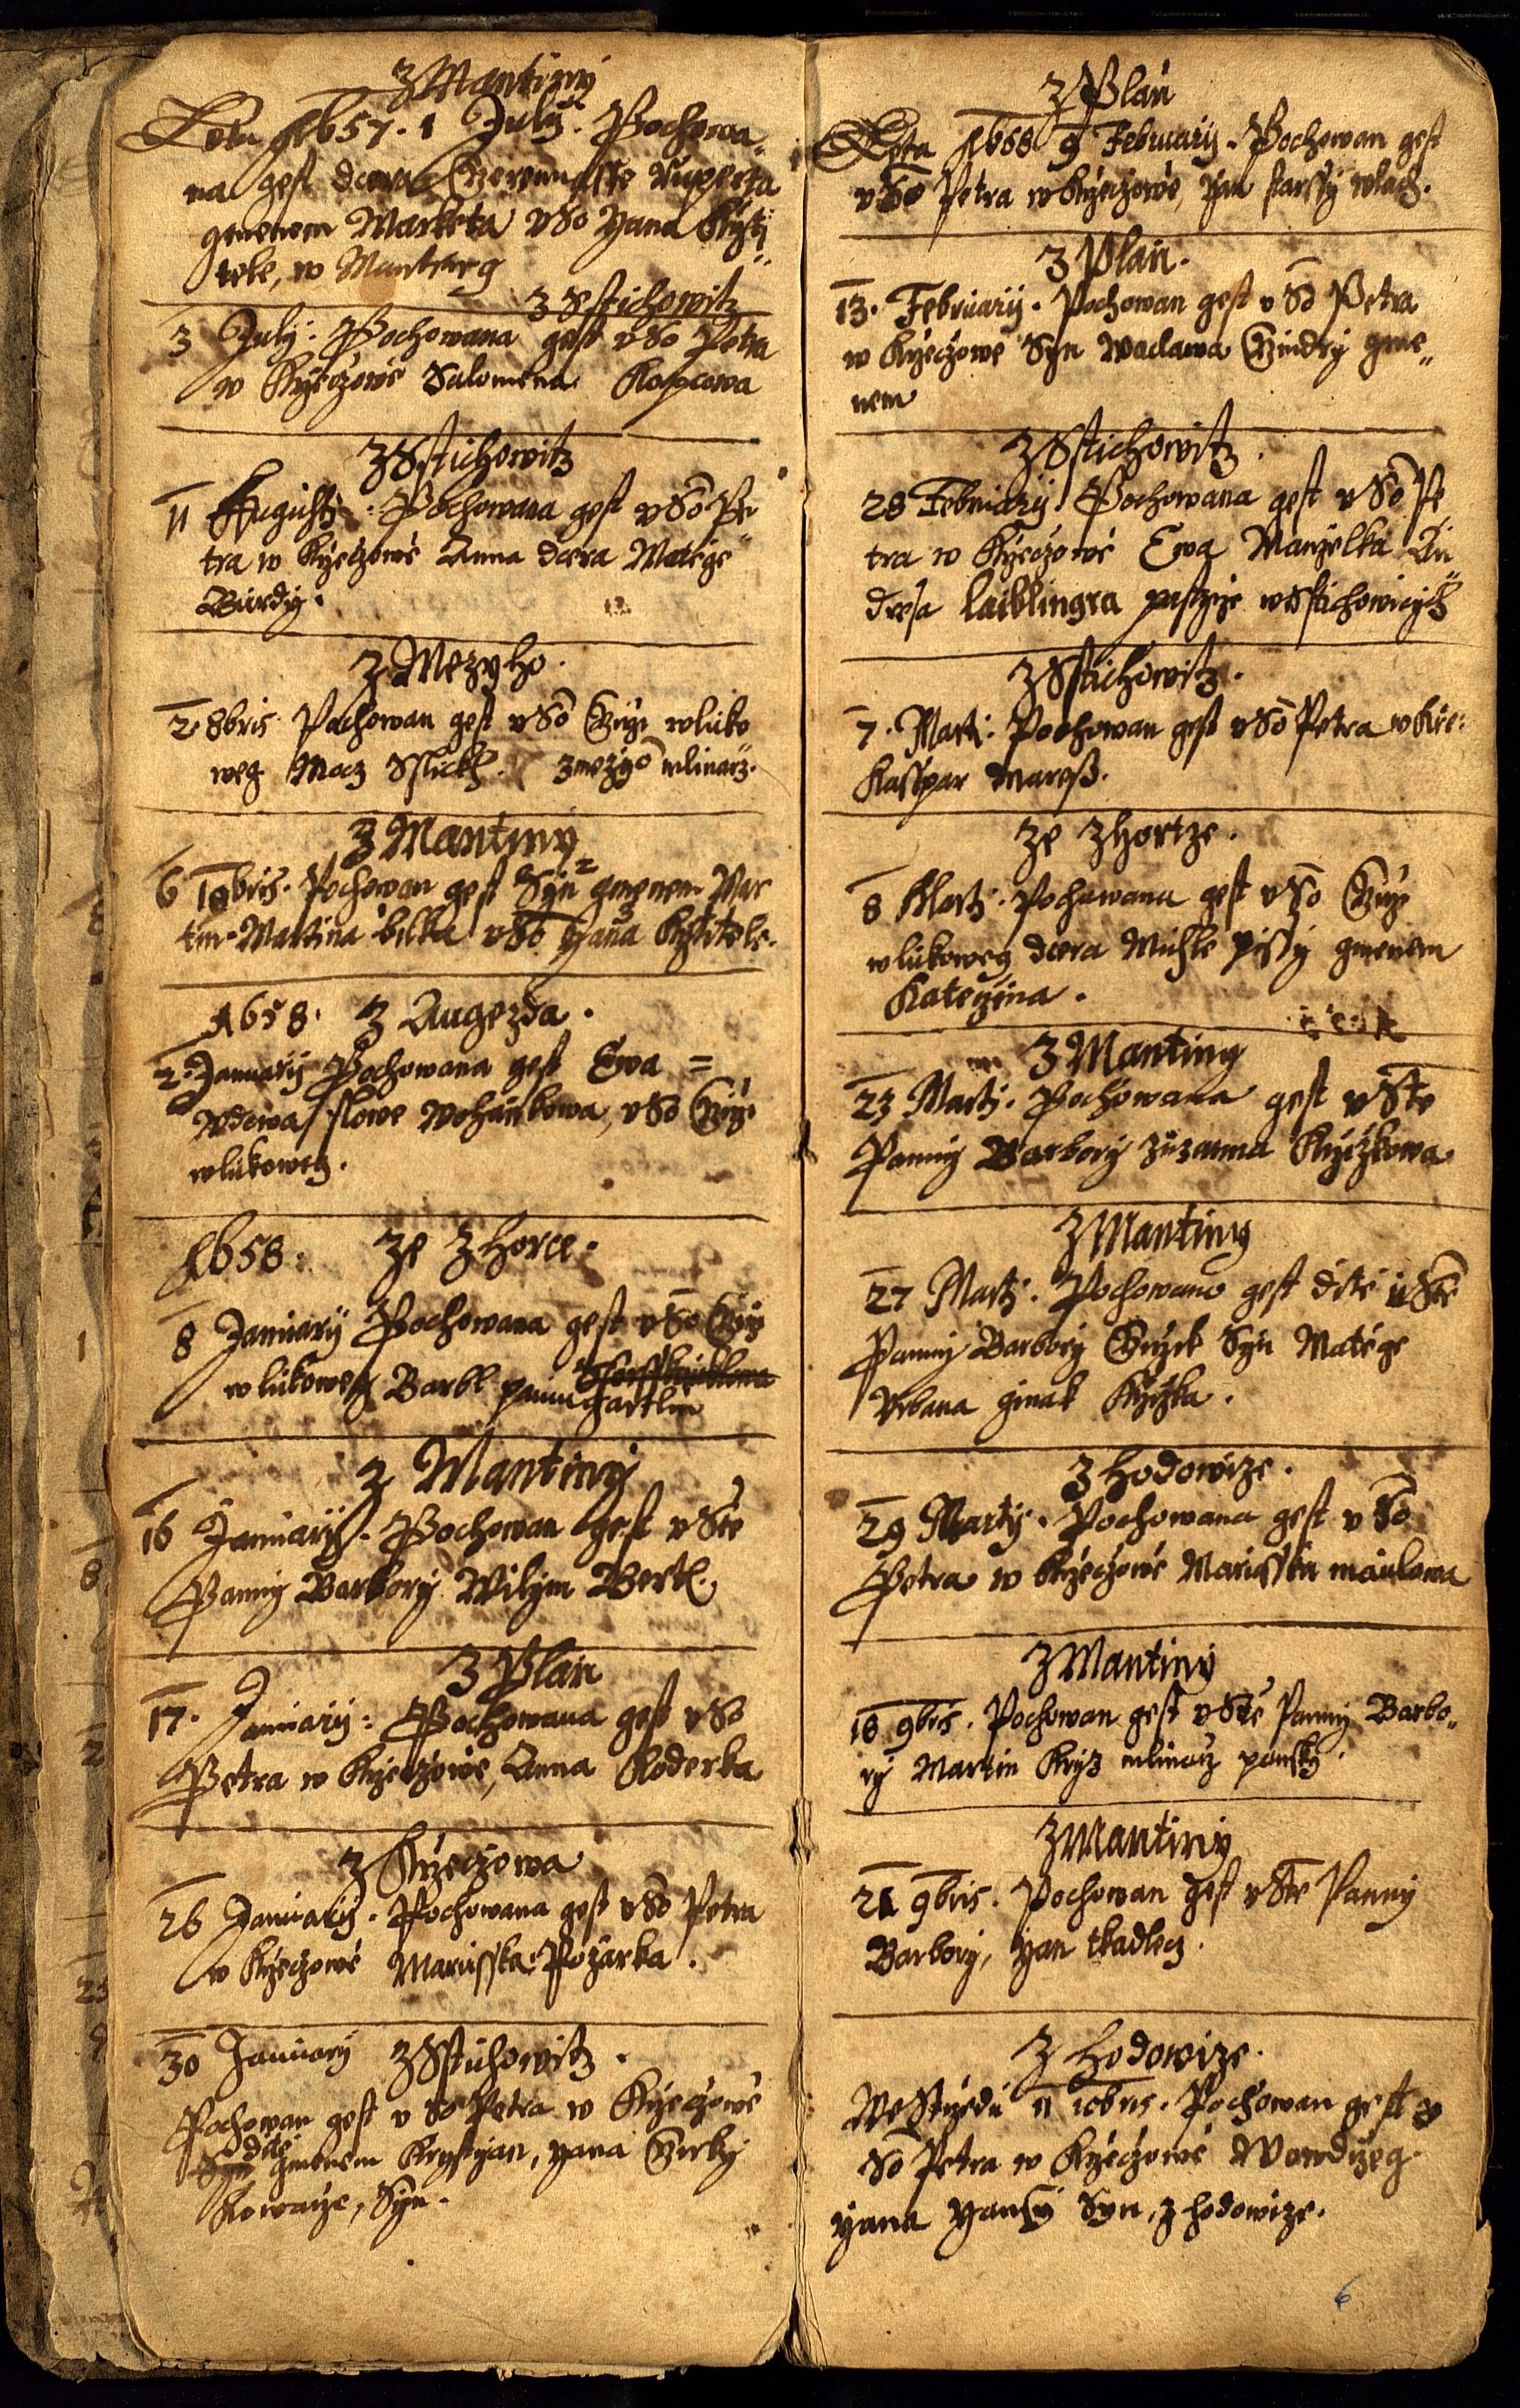 Z Mantiny
Leta 1657. 1 July. Pochowa„
na gest dcera Ruperta
gmenem Marketa v So Yana Krzti„
tele, w Mantiny
Z Sstichowitz
3 July. Pochowana gest v So Petra
w Krzeczowe Salomena
Z Sstichowitz
11 Augusti. Pochowana gest v So Pe
tra w Krzeczowe Anna dcera Matege
Burdy.
Z Mezyho.
2. 8bris. Pochowan gest v So Girzi wluko
weg z mezyho mlinarz.
Z Mantiny
6 10bris. Pochowan gest Syn gmenem Mar
tin Martina bilka v So Yana Krztitele.
1658. Z Augezda.
2. January Pochowana gest Ewa =
Wdowa slowe v So Girzi
wlukoweg.
1658: Ze Zhorce.
8 January Pochowana gest v So Girzi
wlukoweg Barbl paumgartlin
Z Mantiny
16 January. Pochowan gest v Ste
Panny Barbory Wilym Bertl.
Z Plan
17. January: Pochowana gest v So
Petra w Krzeczowe, Anna Koderka
Z Krzeczowa
26 January. Pochowana gest v So Petra
w Krzeczowe Marusska Pozarka.
30 January Z Sstichowitz.
Pochowan gest v So Petra w Krzeczowe
dite
Syn gmenem Krystyan, Yana
Kowarze, Syn.
Z Plan
Leta 1658 9 February. Pochowan gest
v So Petra w Krzeczowe, Jan starssy wlach.
Z Plan.
13. February. Pochowan gest v So Petra
w Krzeczowe Syn Waclawa gme„
nem
Z Sstichowitz.
28 February Pochowana gest v So Pe
tra w Krzeczowe Ewa Manzelka On
dresa Laiblingra w Sstichowicych
Z Sstichowitz.
7. Marti: Pochowan gest v So Petra w Krze:
Kasspar Maress.
Ze Zhortze.
8 Marti. Pochowana gest v So Girzi
wlukoweg dcera Michle pissy gmenem
Katerzina.
Z Mantiny
23 Marti. Pochowana gest v Ste
Panny Barbory Zuzanna Kryczkowa
Z Mantiny
27 Marti. Pochowano gest dite u Ste
Panny Barbory Girzik Syn Matege
Vrbana ginak Kryczka.
Z hodowize.
29 Marty. Pochowana gest v So
Petra w Krzeczowe Marusska maulowa
Z Mantiny
18 9bris. Pochowan gest v Ste Panny Barbo„
ry Martin Kryz mlinarz pansky.
Z Mantiny
21 9bris. Pochowan gest v Ste Panny
Barbory, Yan tkadlecz.
Z hodowize.
We Strzedu 11 10bris. Pochowan gest v
So Petra w Krzeczowe Wondrzeg
Yana Syn, z hodowize.
6